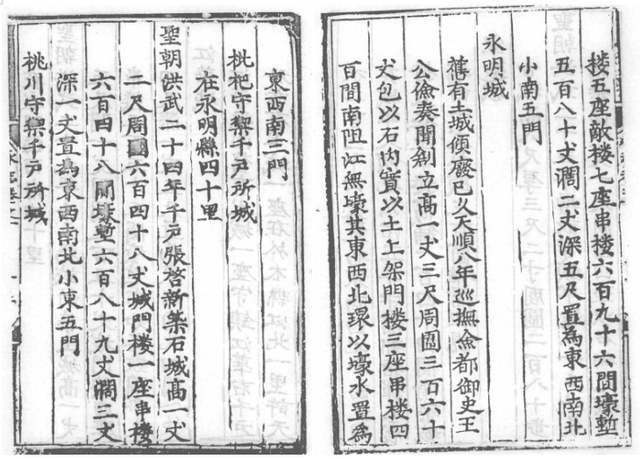 楼五座敵楼七座串楼六百九十六間壕塹
五百八十丈濶二丈深五尺置為東西南北
小南五門
永明城
舊有土城頹廢已久天順八年巡撫僉都御史王
公儉奏聞創立高一丈三尺周圓三百六十
丈包以石内實以土上架門楼三座串楼四
百間南阻江無壕其東西北環以壕水置為
東西南三門
枇杷守禦千戸所城
在永明縣四十里
聖朝洪武二十四年千戸張啓新築石城高一丈
二尺周圓六百四十八丈城門楼一座串楼
六百四十八間壕塹六百八十九丈濶三丈
深一丈置為東西南北小東五門
桃川守禦千戸所城